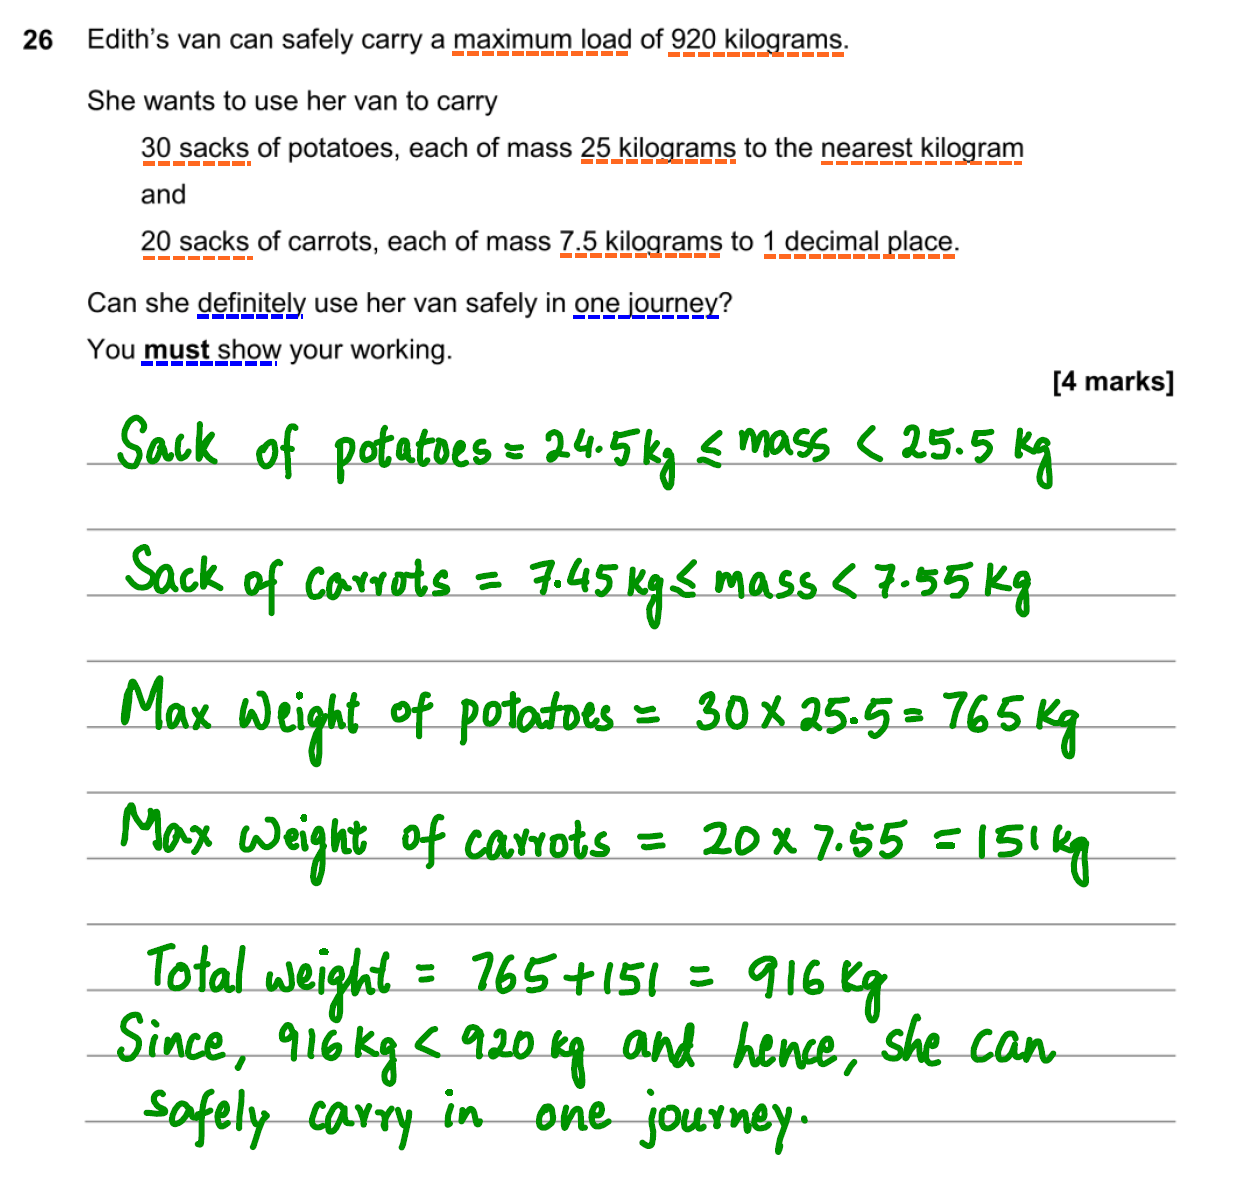 26 Edith's van can safely carry a maximum load of 920 kilograms.
She wants to use her van to carry
30 sacks of potatoes, each of mass 25 kilograms to the nearest kilogram
and
20 sacks of carrots, each of mass 7.5 kilograms to 1 decimal place.
Can she definitely use her van safely in one journey?
You must show your working.
[4 marks]
Sack of potatoes = 24.5kg ≤ mass < 25.5 kg
Sack of carrots = 7.45 kg ≤ mass < 7.55 kg
Max Weight of potatoes = 30 × 25.5 = 765 kg
Max Weight of carrots = 20 × 7.55 = 151 kg
Total weight = 765 + 151 = 916 kg
Since, 916 kg < 920 kg and hence, she can
safely carry in one journey.